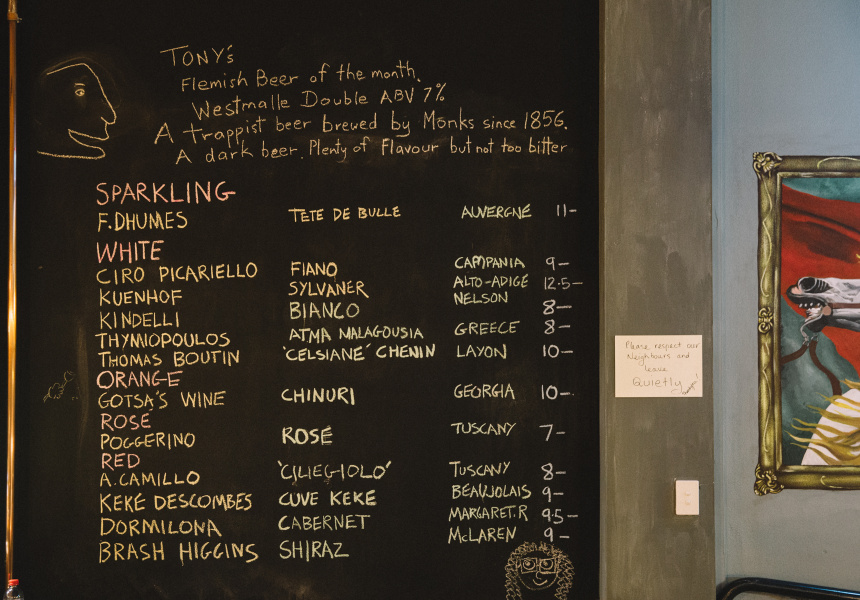 TONY's
Flemish Beer of the month.
Westmalle Double ABV 7%
A trappist beer brewed by Monks since 1856.
A dark beer. Plenty of Flavour but not too bitter
SPARKLING
F.DHUMES TETE DE BULLE AUVERGNE 11-
WHITE
CIRO PICARIELLO FIANO CAMPANIA 9-
KUENHOF SYLVANER ALTO-ADIGE 12.5-
KINDELLI BIANCO NELSON 8-
THYMIOPOULOS ATMA MALAGOUSIA GREECE 8-
THOMAS BOUTIN 'CELSIANE' CHENIN LAYON 10-
ORANGE
GOTSA'S WINE CHINURI GEORGIA 10-
ROSE
POGGERINO ROSÉ TUSCANY 7-
RED
A.CAMILLO 'CILIEGIOLO' TUSCANY 8-
KEKÉ DESCOMBES CUVE KEKE BEAUJOLAIS 9-
DORMILONA CABERNET MARGARET.R 9.5-
BRASH HIGGINS SHIRAZ McLAREN 9-
Please respect our
Neighbours and
leave
Quietly!